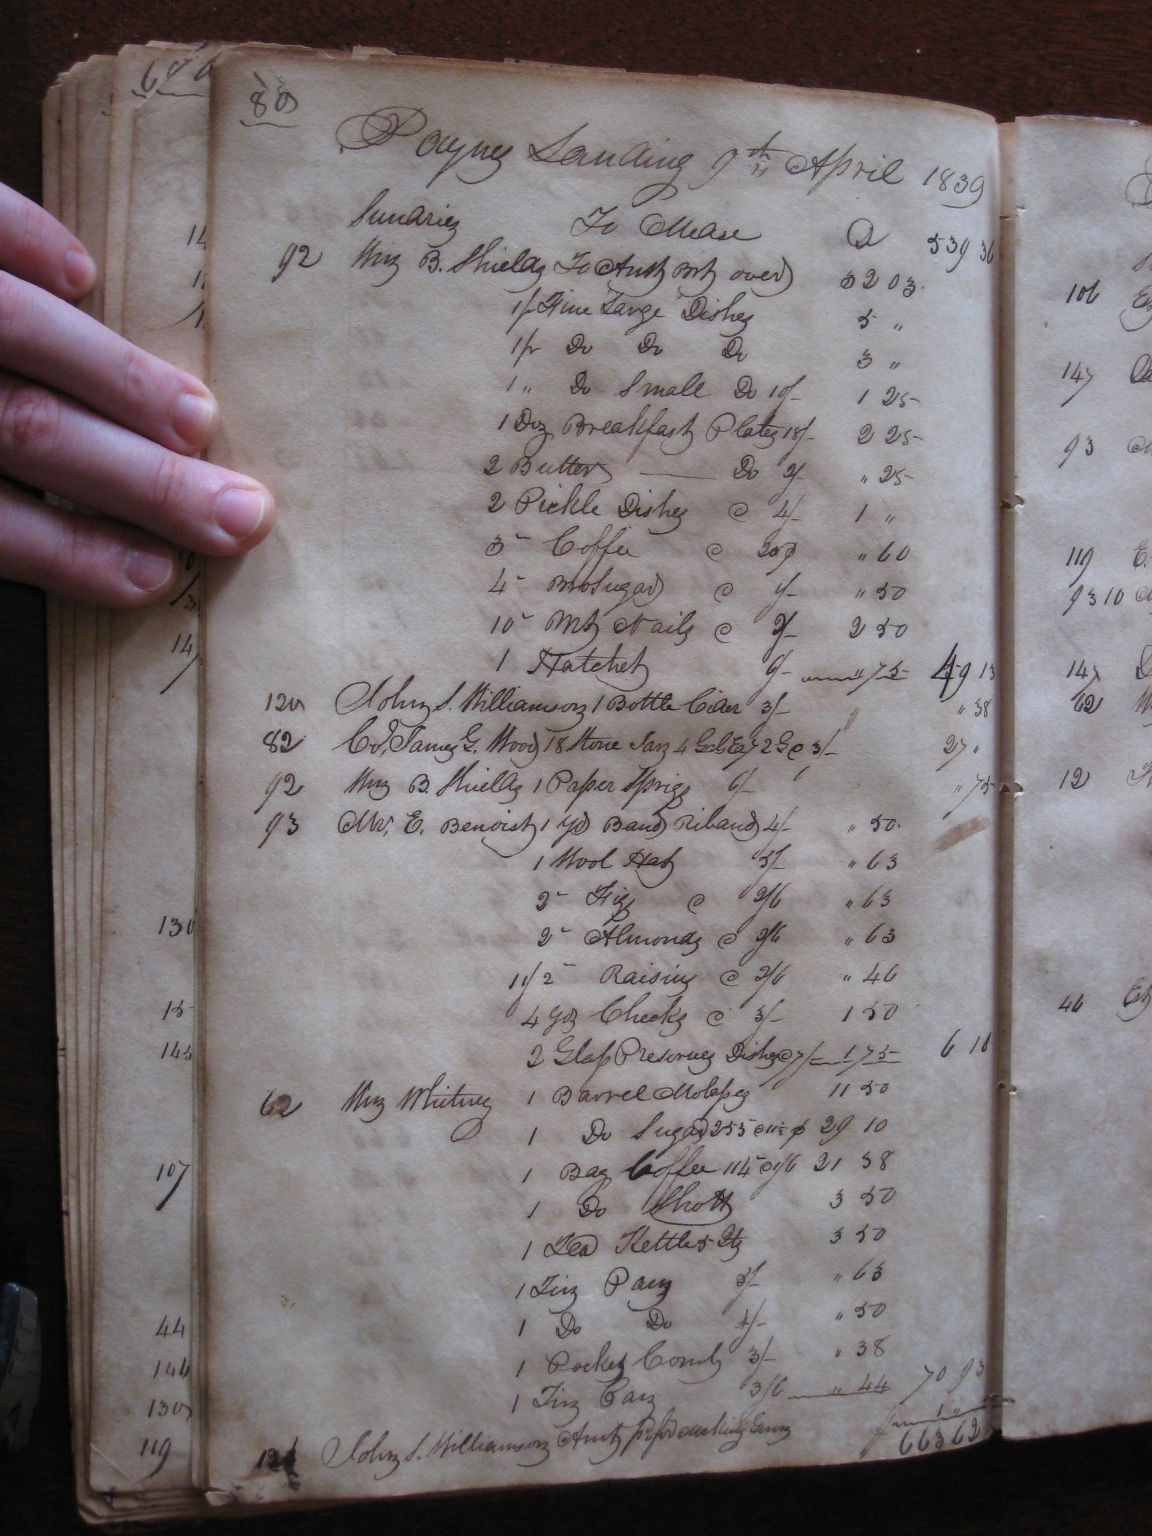 80
Paynes Landing 9th April 1839
Sundries To Mdse Dr 539 36
92 Wm B. Shields To Amt brt over 32 03
1 pr Fine Large Dishes 5 "
1 pr Do Do Do 3 "
1 " Do Small Do 10/- 1 25
1 Doz Breakfast Plates 18/- 2 25
2 Butter — Do 2/- " 25
2 Pickle Dishes @ 4/- 1 "
3 Coffee @ 20¢ " 60
4 Bro Sugar @ 1/- " 50
10 Wrt Nails @ 2/- 2 50
1 Hatchet 6/- " 75 49 13
120 John S. Williamson 1 Bottle Cider 3/- " 38
82 Col James G. Wood 18 Stone Jars 4 Gal Ea 72 G @ 3/- 27 "
92 Wm B. Shields 1 Paper Sprigs 6/- " 75
93 Mr. E. Benoist 1 yd Band Riband 4/- " 50
1 Wool Hat 5/- " 63
2 Figs @ 2/6 " 63
2 Almonds @ 2/6 " 63
1 1/2 Raisins @ 2/6 " 46
4 yds Checks @ 3/- 1 50
2 Glass Preserves Dishes @ 7/- 1 75 6 10
62 Wm Whitney 1 Barrel Molasses 11 50
1 Do Sugar 255 @ 11½ ¢ 29 10
1 Bag Coffee 114 @ 1/6 21 38
1 Do Shott 3 50
1 Tea Kettle 5 Qts 3 50
1 Tin Pan 5/- " 63
1 Do Do 4/- " 50
1 Pocket Comb 3/- " 38
1 Tin Can 3/6 " 44 70 93
John S. Williamson Amt pd for 1 "
663 62
106
147
93
119 E.
93 10
147
62
12
46
14
14
130
15
107
44
146
130
119